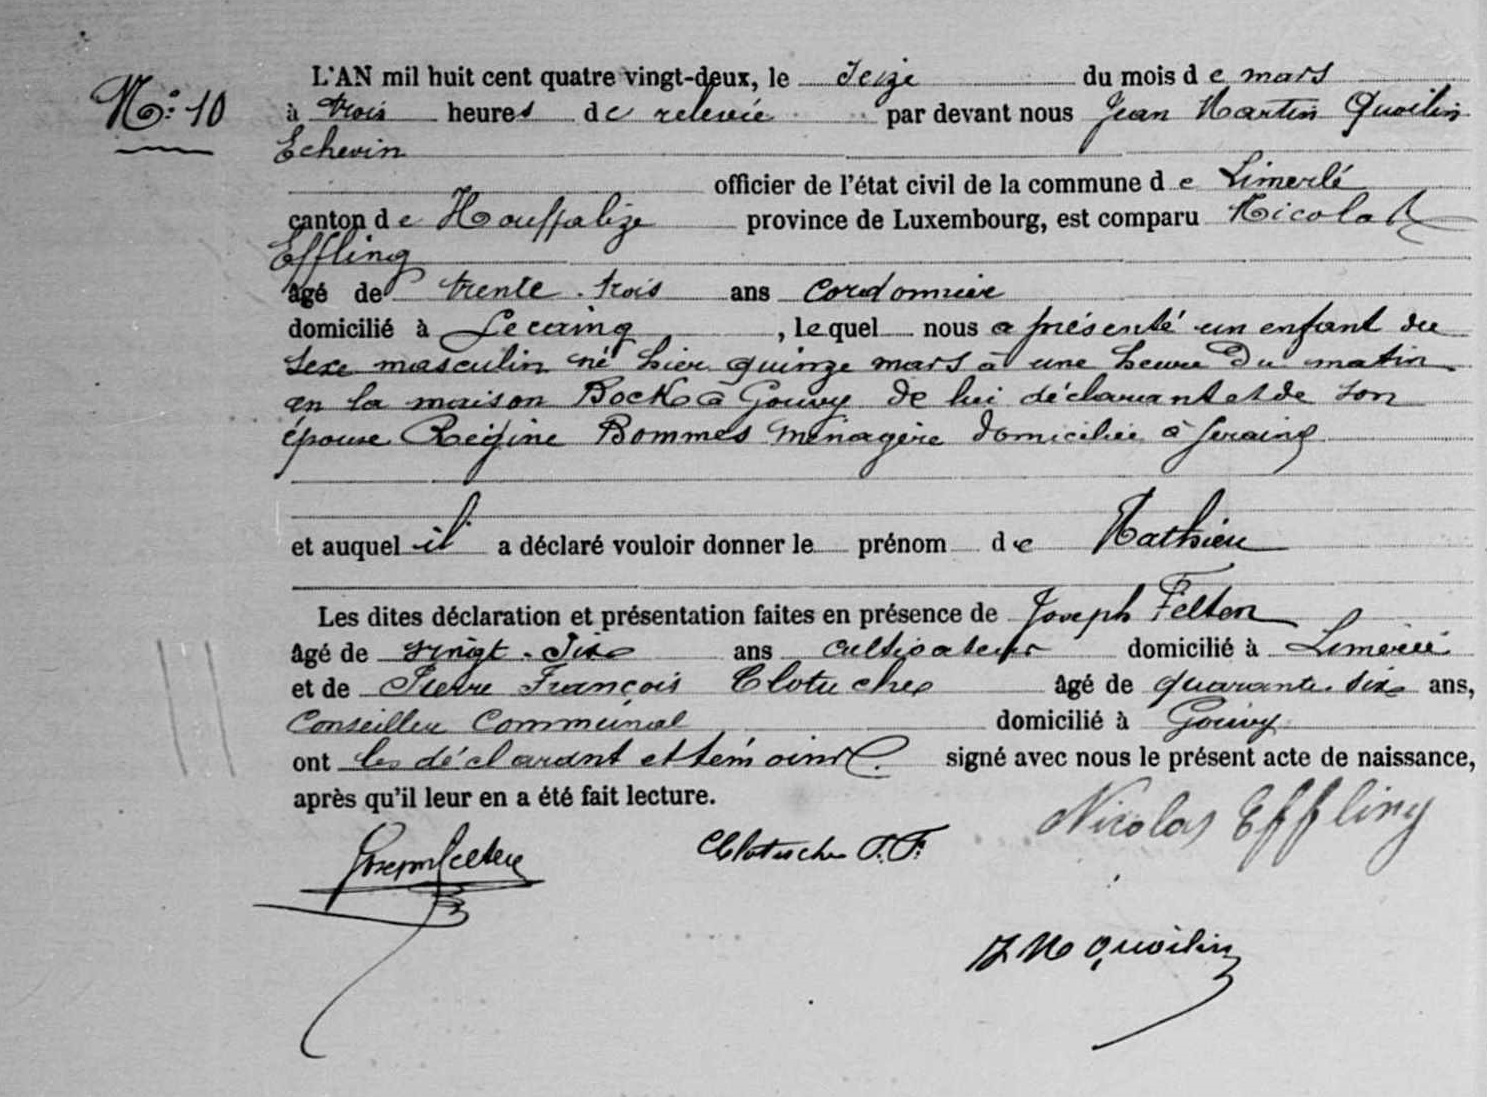 N.° 10
L'AN mil huit cent quatre vingt-deux, le seize du mois de mars
à trois heures de relevée par devant nous Jean Martin Quoilin
Echevin
officier de l'état civil de la commune de Limerlé
canton de Houffalize province de Luxembourg, est comparu Nicolas
Effling
âgé de trente-trois ans cordonnier
domicilié à Seraing, lequel nous a présenté un enfant du
sexe masculin né hier quinze mars à une heure du matin
en la maison Bock à Gouvy de lui déclarant et de son
épouse Régine Bommes ménagère domiciliée à Seraing
et auquel il a déclaré vouloir donner le prénom de Mathieu
Les dites déclaration et présentation faites en présence de Joseph Felten
âgé de vingt-six ans cultivateur domicilié à Limerlé
et de Pierre François Clotuche âgé de quarante-six ans,
Conseiller Communal domicilié à Gouvy
ont les déclarant et témoins signé avec nous le présent acte de naissance,
après qu'il leur en a été fait lecture.
Nicolas Effling
Joseph Felten
Clotuche P. F.
J M Quoilin